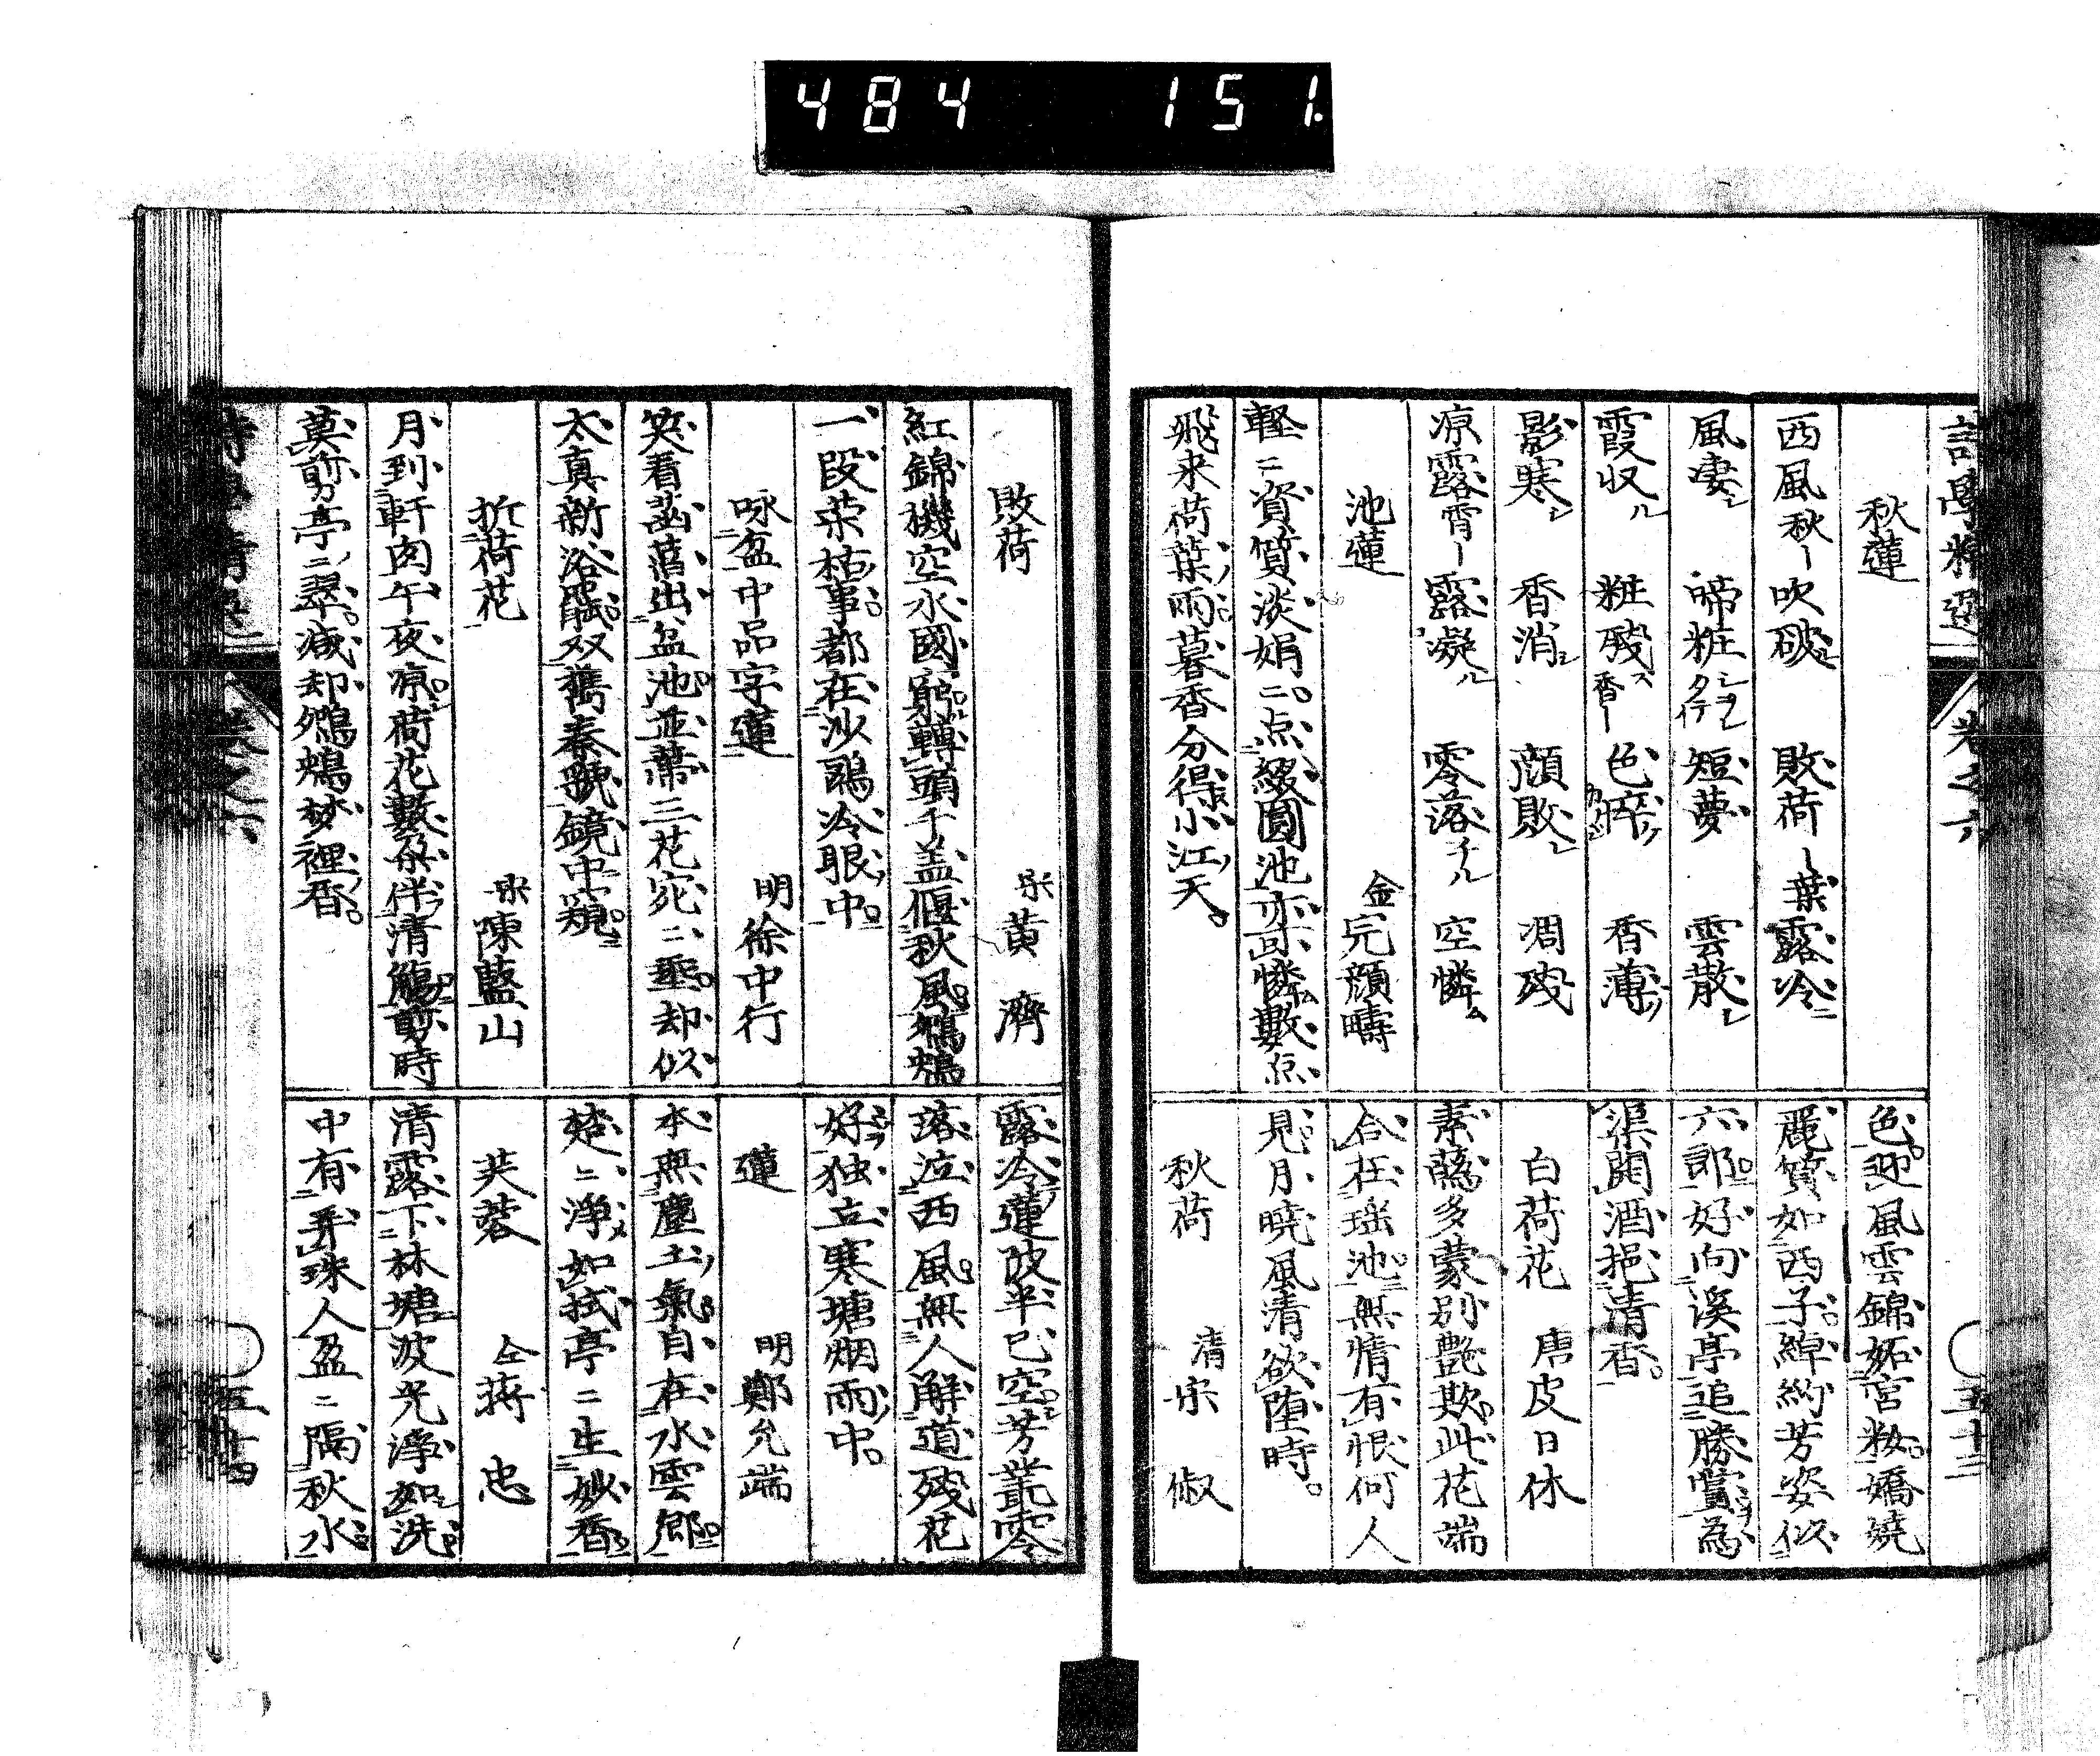 484 151.
秋蓮
西風秋ー 吹破 敗荷ー葉 露冷
風凄 啼粧 短夢 雲散
霞収 粧殘香ー 色瘁 香薄
影寒 香消 顔敗 凋殘
凉露霄ー 露凝 零落 空憐
池蓮 金完顔疇
軽〻資質淡娟〻点綴圓池亦可憐數点
飛来荷葉雨暮香分得小江天
色迎風雲錦妬宮粧嬌嬈
麗質如西子綽約芳姿似
六郎好向溪亭追勝賞為
渠開酒挹清香
白荷花 唐皮日休
素蘤多蒙別艶欺此花端
合在瑶池無情有恨何人
見月曉風清欲堕時
秋荷 清宋俶
敗荷 宋黄濟
紅錦機空水國窮轉頭千盖偃秋風鸂鶒
一段荣枯事都在沙鷗冷眼中
咏盆中品字蓮 明徐中行
笑看菡萏出盆池並蒂三花宛〻垂却似
太真新浴罷双携秦虢鏡中窺
折荷花 宋陳藍山
月到軒囱午夜凉荷花數朶伴清觴剪時
莫剪亭〻翠減却鸂鶒梦裡香
露冷蓮陂半已空芳叢零
落泣西風無人解道殘花
好独立寒塘烟雨中
蓮 明鄭允端
本無塵土氣自在水雲郷
楚〻浄如拭亭〻生妙香
芙蓉 仝蒋忠
清露下林塘波光浄如洗
中有弄珠人盈〻隔秋水